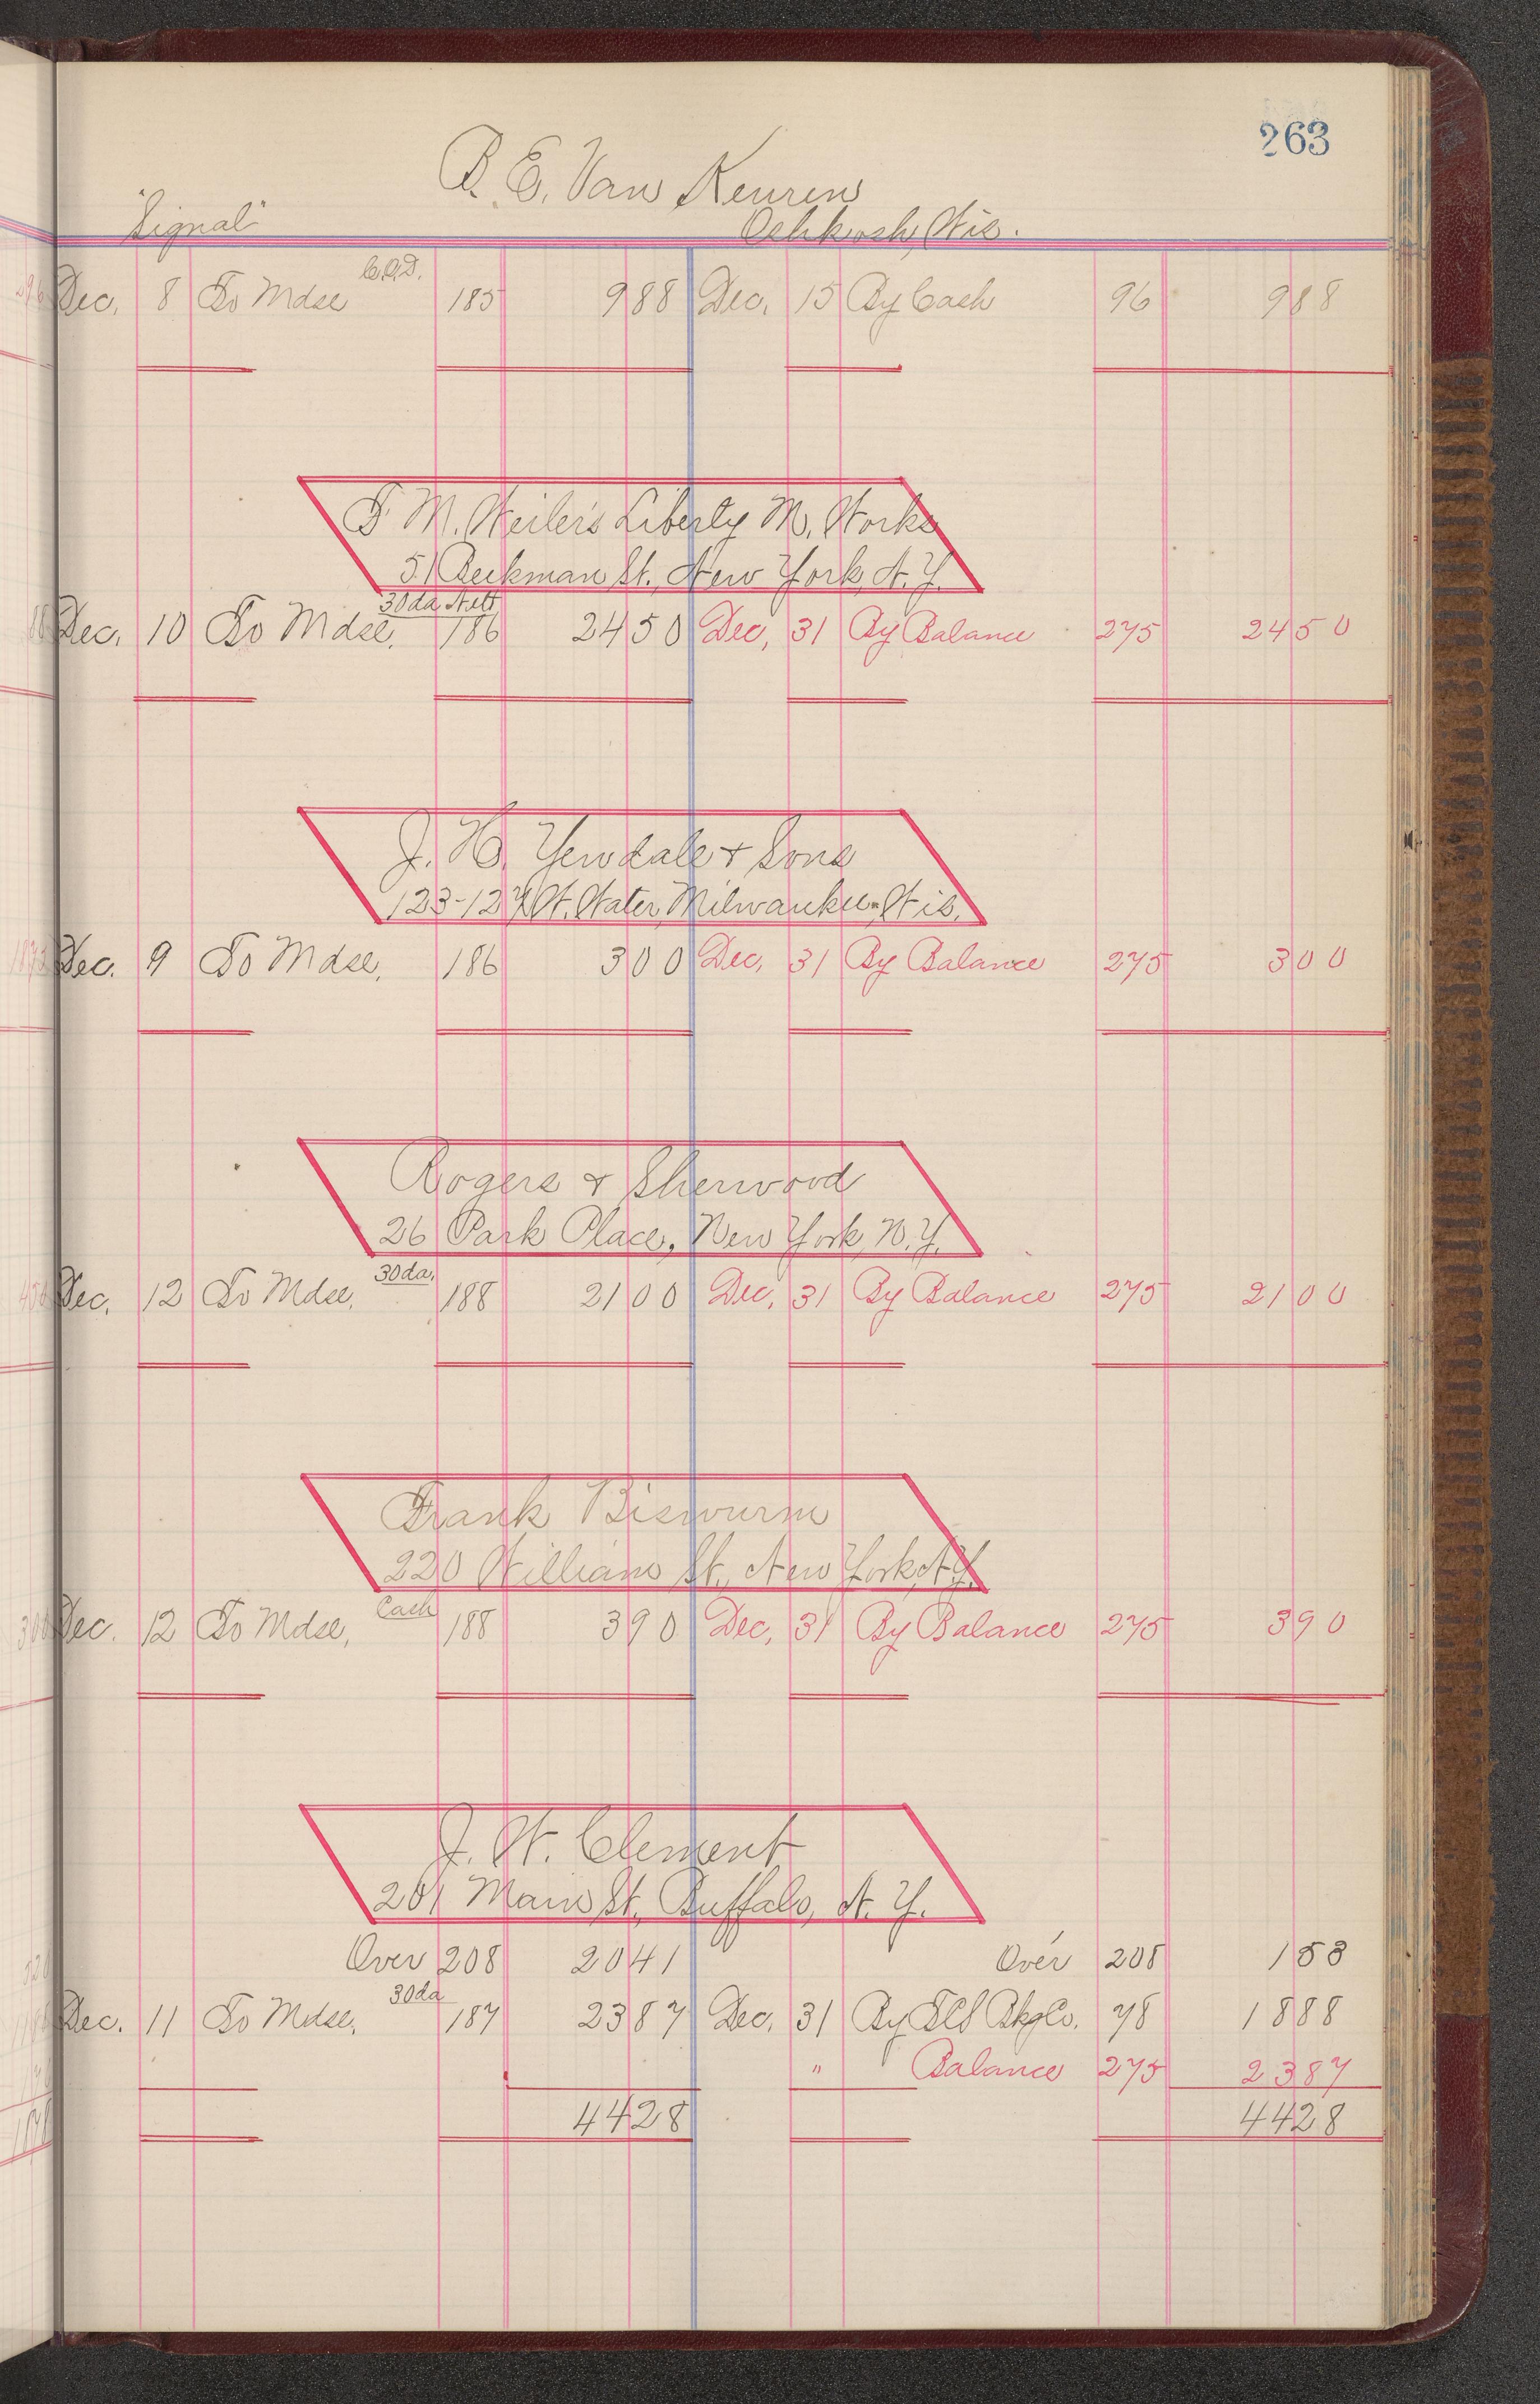 263
B. E. Van Keuren
"Signal" Oshkosh, Wis.
C.O.D.
Dec. 8 To Mdse 185 9 88 Dec. 15 By Cash 96 9 88
F M. Weiler's Liberty M. Works
51 Beekman St., New York, N.Y.
30 da Nett
Dec. 10 To Mdse. 186 24 50 Dec. 31 By Balance 275 24 50
J. H. Yewdale & Sons
W. Water, Milwaukee, Wis.
Dec. 9 To Mdse. 186 3 00 Dec. 31 By Balance 275 3 00
Rogers & Sherwood
26 Park Place, New York, N.Y.
30 da.
Dec. 12 To Mdse. 188 21 00 Dec. 31 By Balance 275 21 00
Frank Biswurm
220 William St., New York, N.Y.
Cash
Dec. 12 To Mdse. 188 3 90 Dec. 31 By Balance 275 3 90
J. W. Clement
201 Main St., Buffalo, N.Y.
Over 208 20 41 Over 208 1 53
30 da
Dec. 11 To Mdse. 187 23 87 Dec. 31 By Bkg Co. 78 18 88
" Balance 275 23 87
44 28 44 28